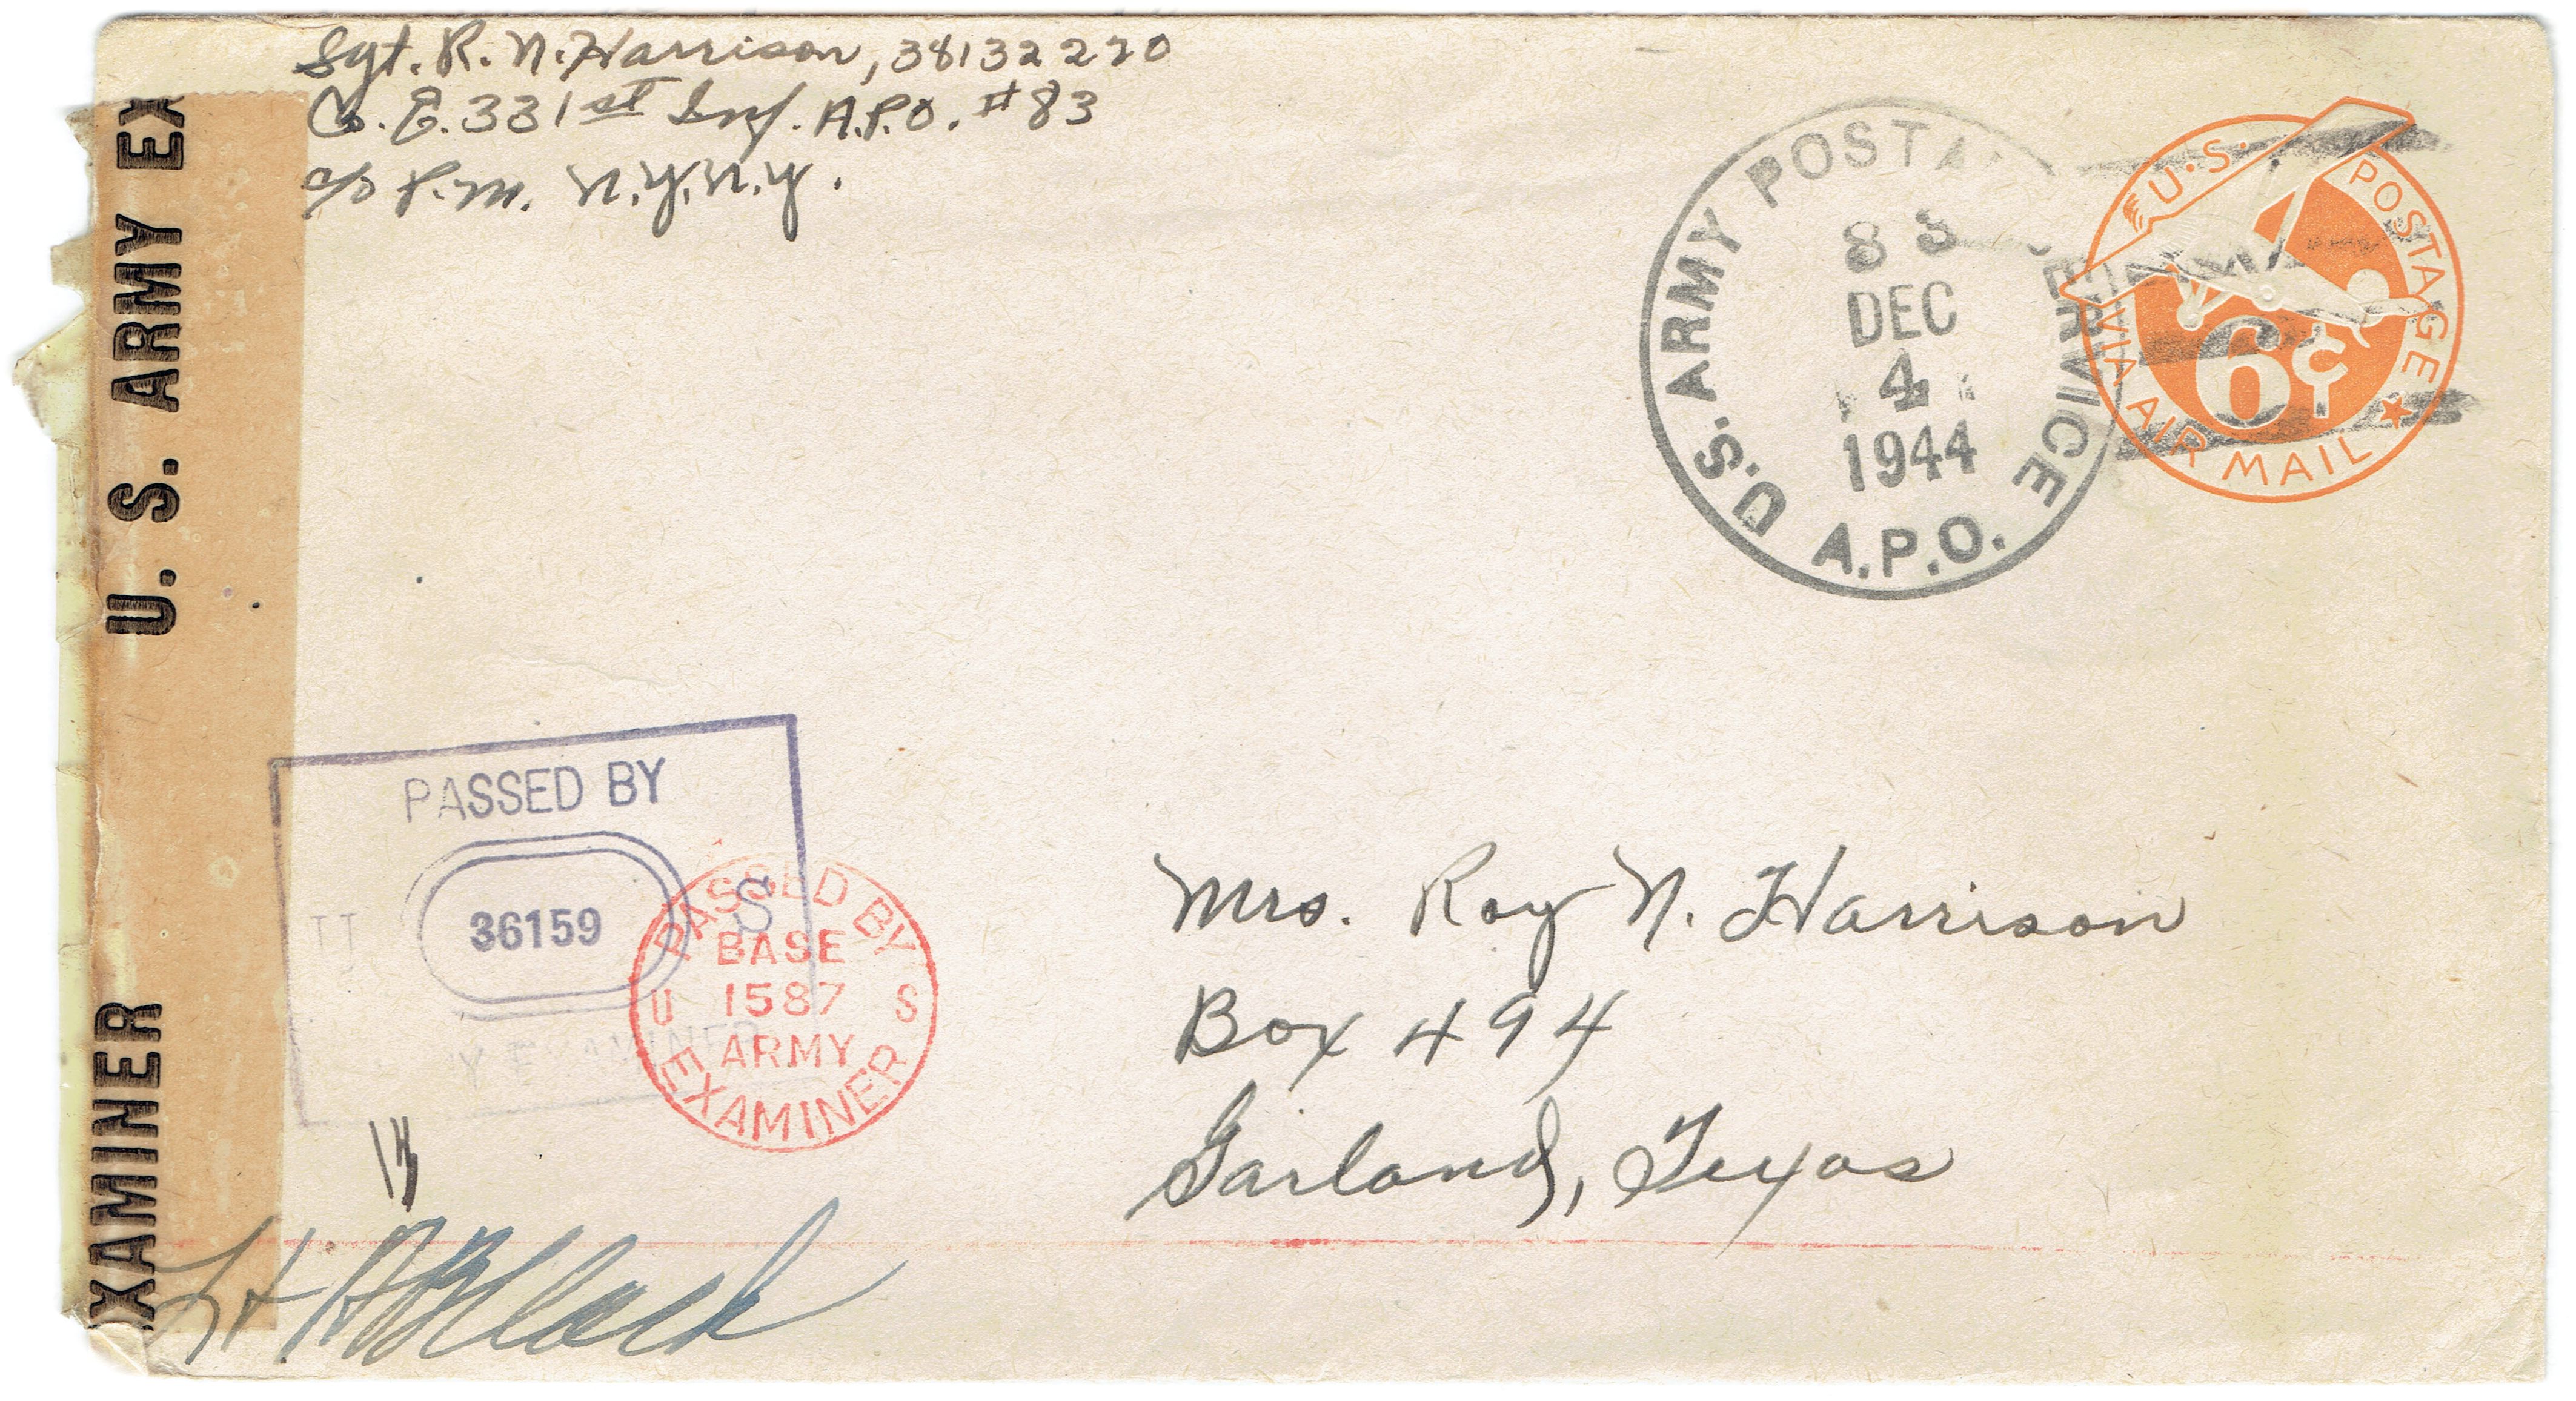 Sgt. R. N. Harrison, 38132220
Co. E. 331st Inf. A.P.O. #83
c/o P.M. N.Y., N.Y.
U.S. ARMY POSTAL SERVICE
83
DEC
4
1944
A.P.O.
U.S. POSTAGE
6¢
VIA AIR MAIL
U. S. ARMY EX
XAMINER
PASSED BY
36159
S
Y EXAMINER
PASSED BY
BASE
U 1587 S
ARMY
EXAMINER
Mrs. Roy N. Harrison
Box 494
Garland, Texas
Lt